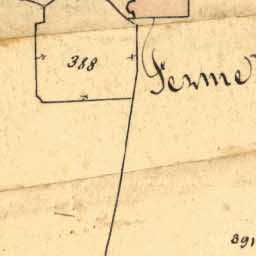 388
Ferme
891